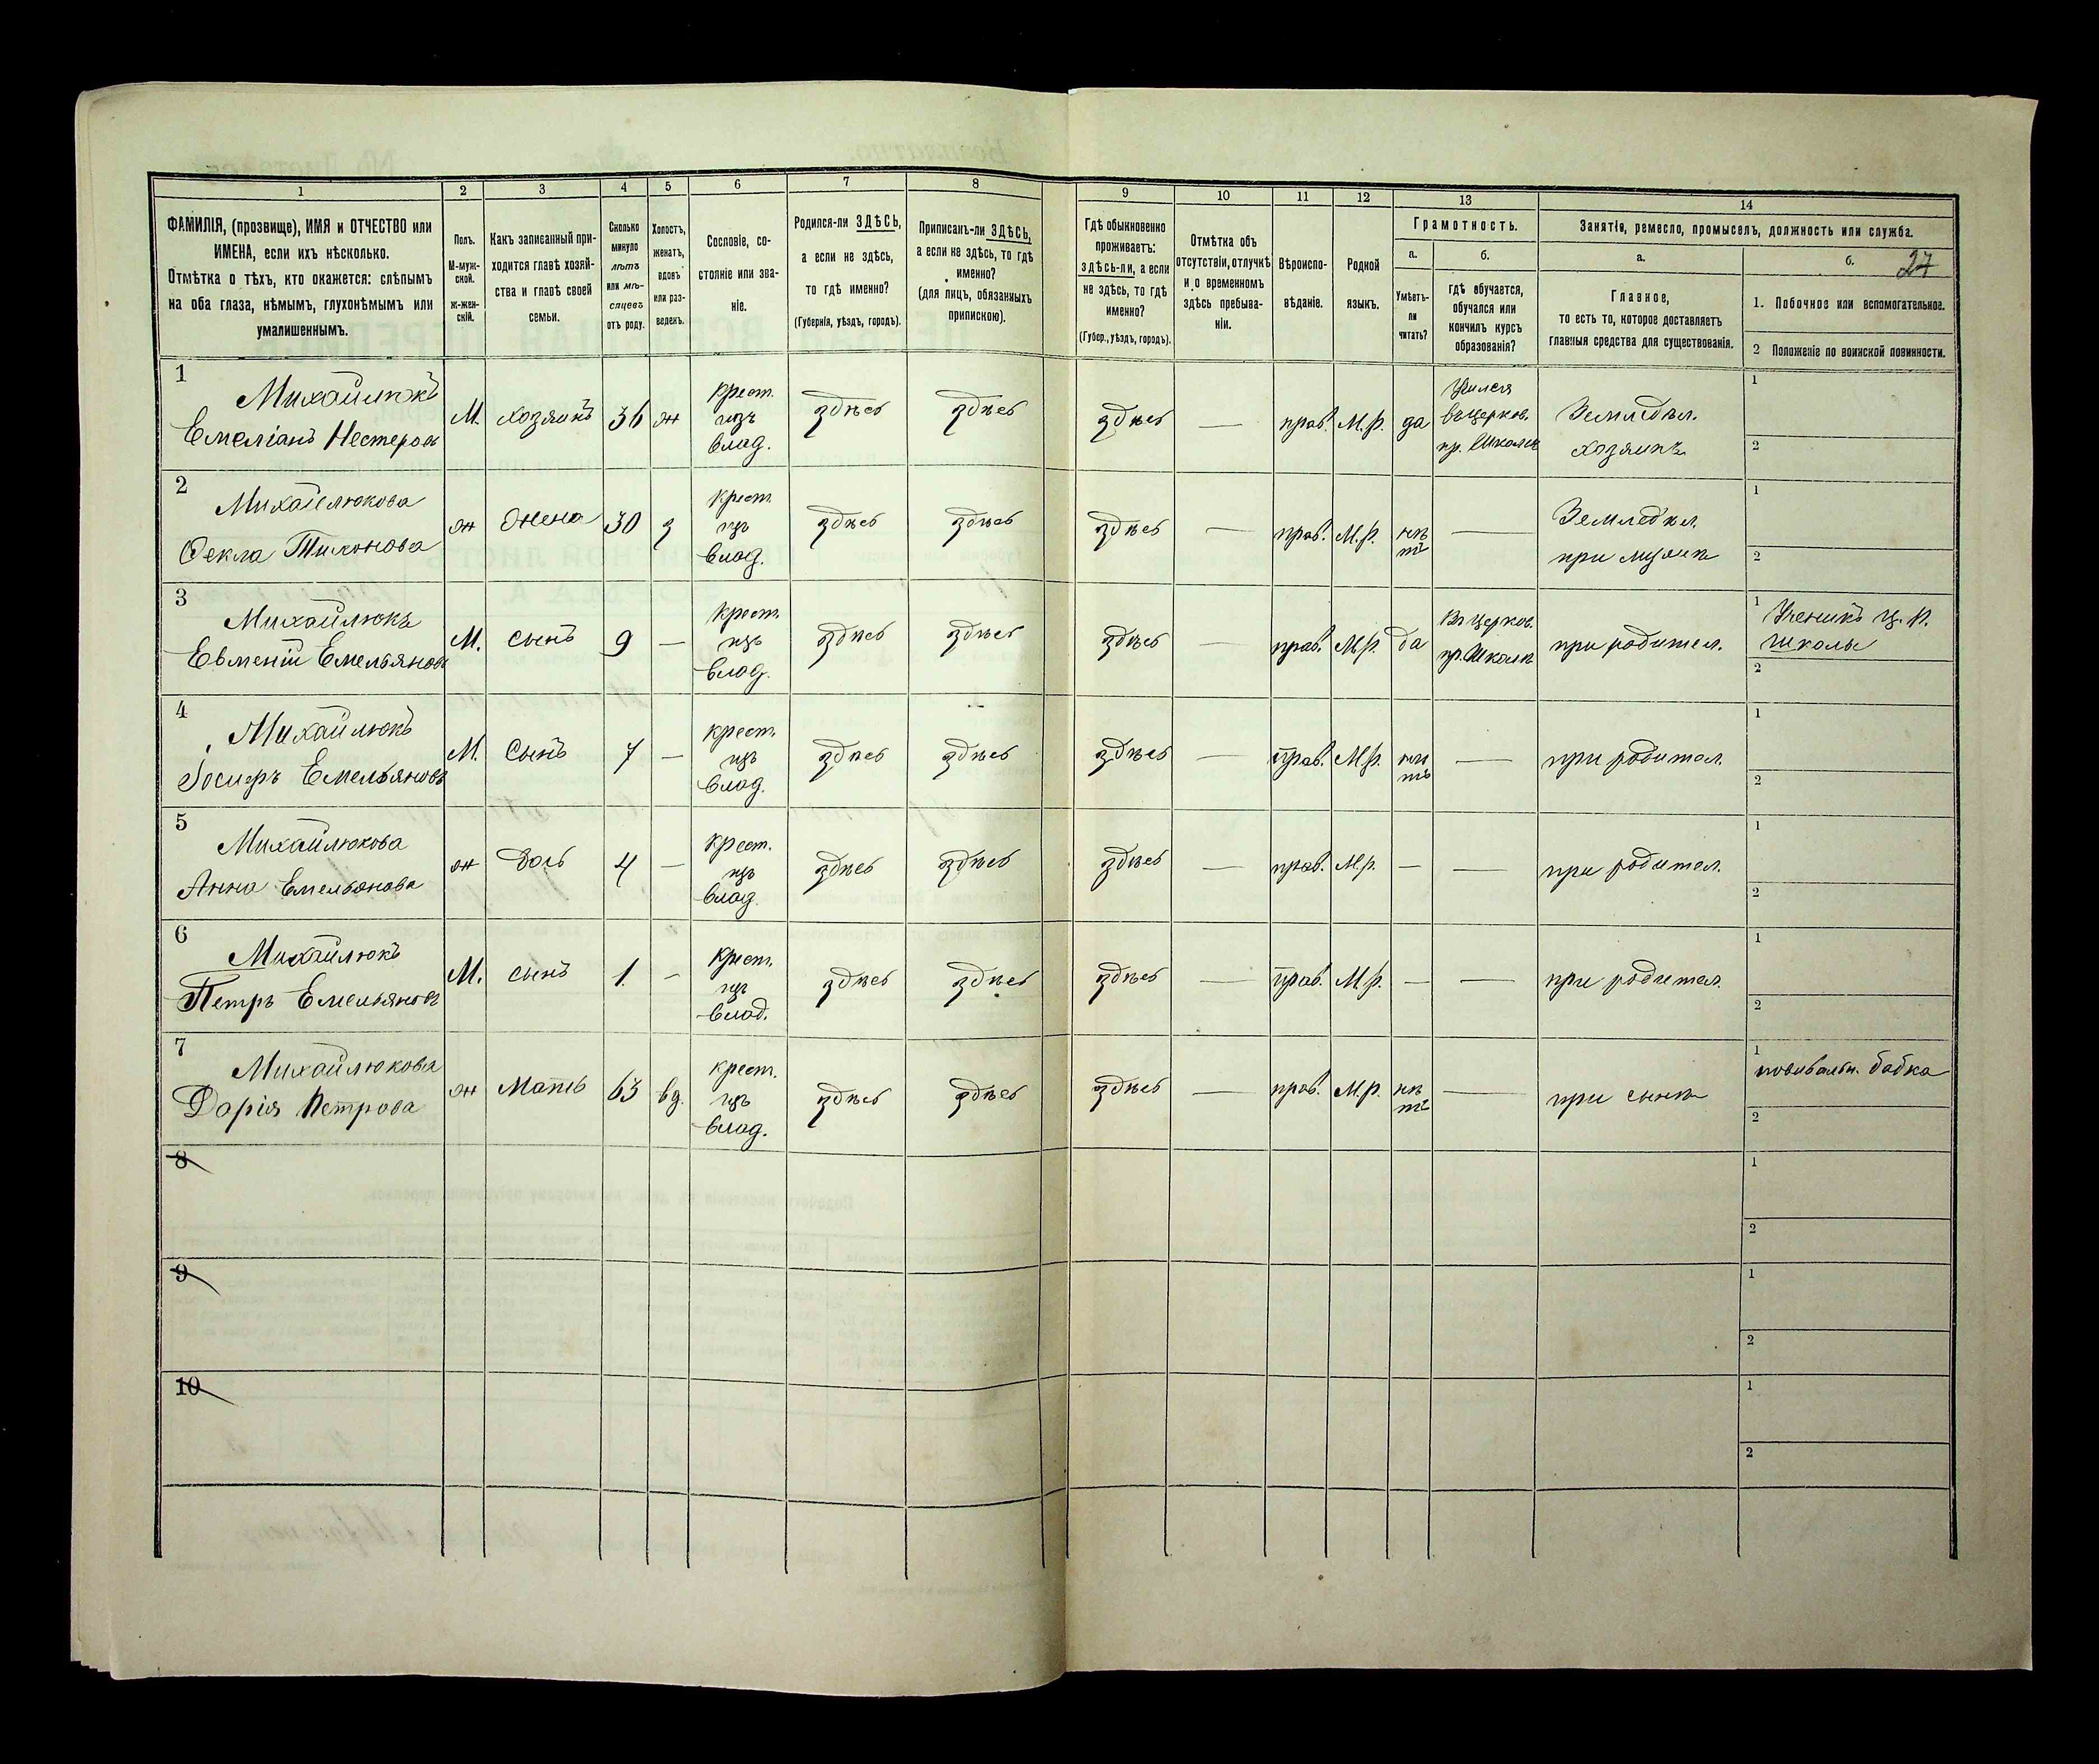 1 2 3 4 5 6 7 8 9 10 11 12 13 14
ФАМИЛІЯ, (прозвище), ИМЯ и ОТЧЕСТВО или
ИМЕНА, если ихъ нѣсколько.
Отмѣтка о тѣхъ, кто окажется: слѣпымъ
на оба глаза, нѣмымъ, глухонѣмымъ или
умалишеннымъ.
Полъ.
М-муж-
ской.
ж-жен-
скій.
Какъ записанный при-
ходится главѣ хозяй-
ства и главѣ своей
семьи.
Сколько
минуло
лѣтъ
или мѣ-
сяцевъ
отъ роду.
Холостъ,
женатъ,
вдовъ
или раз-
веденъ.
Сословіе, со-
стояніе или зва-
ніе.
Родился-ли ЗДѢСЬ,
а если не здѣсь,
то гдѣ именно?
(Губернія, уѣздъ, городъ).
Приписанъ-ли ЗДѢСЬ,
а если не здѣсь, то гдѣ
именно?
(для лицъ, обязанныхъ
припискою).
Гдѣ обыкновенно
проживаетъ:
здѣсь-ли, а если
не здѣсь, то гдѣ
именно?
(Губер., уѣздъ, городъ).
Отмѣтка объ
отсутствіи, отлучкѣ
и о временномъ
здѣсь пребыва-
ніи.
Вѣроиспо-
вѣданіе.
Родной
языкъ.
Грамотность.
а.
Умѣетъ-
ли
читать?
б.
гдѣ обучается,
обучался или
кончилъ курсъ
образованія?
Занятіе, ремесло, промыселъ, должность или служба.
а.
Главное,
то есть то, которое доставляетъ
главныя средства для существованія.
б. 27
1. Побочное или вспомогательное.
2 Положеніе по воинской повинности.
1
Михайлюкъ
Емеліанъ Нестеровъ
М. хозяинъ 36 ж
крест.
изъ
влад.
здѣсь здѣсь здѣсь — прав. М.р. да
Учился
въ церков.
пр. Школѣ
Земледѣл.
хозяинъ
1
2
2
Михайлюкова
Ѳекла Тихонова
ж жена 30 з
крест.
изъ
влад.
здѣсь здѣсь здѣсь — прав. М.р.
нѣ
тъ
—
Земледѣл.
при мужѣ
1
2
3
Михайлюкъ
Евменій Емельяновъ
М. сынъ 9 —
крест.
изъ
влад.
здѣсь здѣсь здѣсь — прав. М.р. да
Въ церков.
пр. Школѣ
при родител.
1 Ученикъ ц. п.
школы
2
4
Михайлюкъ
Іосифъ Емельяновъ
М. Сынъ 7 —
крест.
изъ
влад.
здѣсь здѣсь здѣсь — прав. М.р.
нѣ
тъ
—
при родител.
1
2
5
Михайлюкова
Анна Емельянова
ж дочь 4 —
крест.
изъ
влад.
здѣсь здѣсь здѣсь — прав. М.р. — —
при родител.
1
2
6
Михайлюкъ
Петръ Емельяновъ
М. сынъ 1. —
крест.
изъ
влад.
здѣсь здѣсь здѣсь — прав. М.р. — —
при родител.
1
2
7
Михайлюкова
Дарія Петрова
ж Мать 63 вд.
крест.
изъ
влад.
здѣсь здѣсь здѣсь — прав. М.р.
нѣ
тъ
—
при сынѣ
1 повивальн. бабка
2
8
1
2
9
1
2
10
1
2